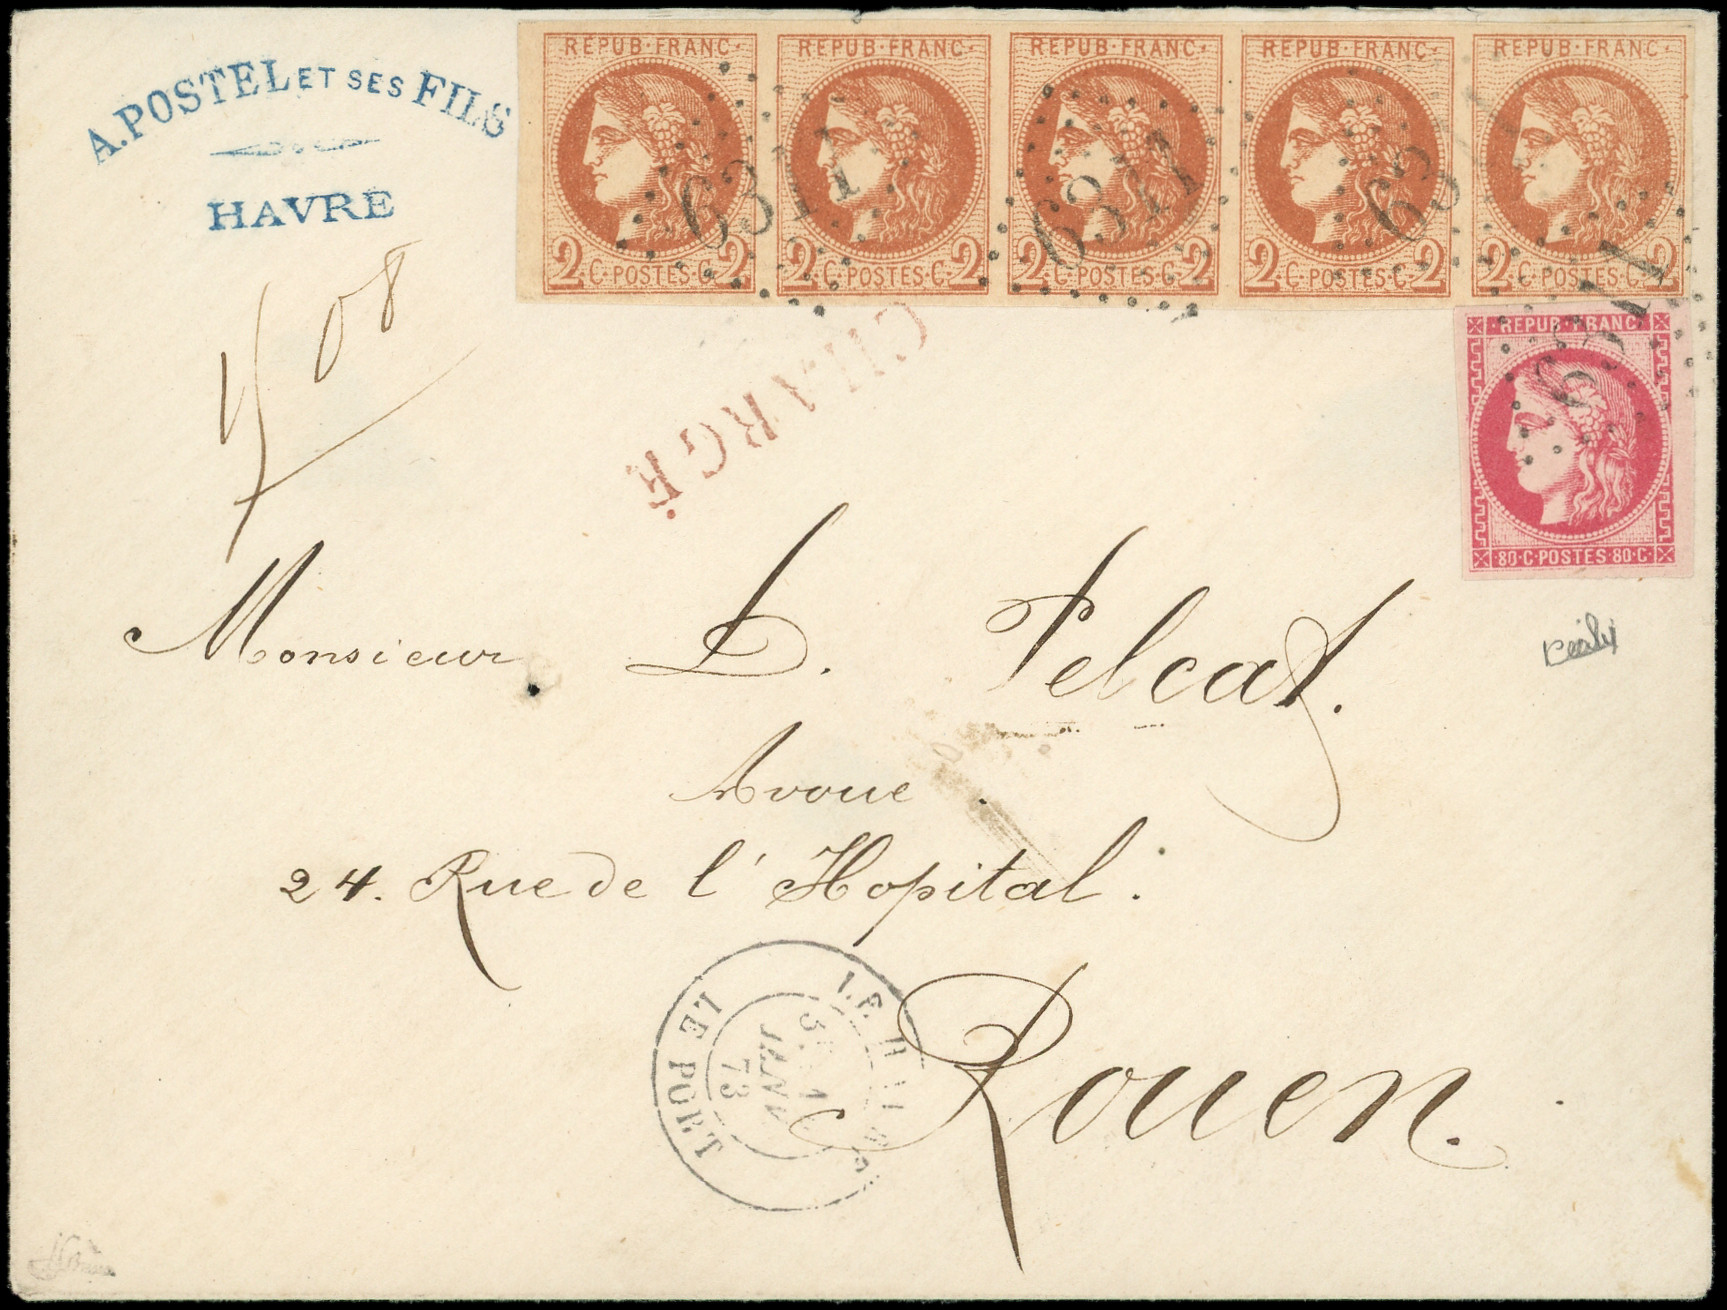 A. POSTEL ET SES FILS
HAVRE
REPUB·FRANC· REPUB·FRANC· REPUB·FRANC· REPUB·FRANC· REPUB·FRANC·
6311 6311 6311
2 C·POSTES·C· 2 2 C·POSTES·C· 2 2 C·POSTES·C· 2 2 C·POSTES·C· 2 2 C·POSTES·C· 2
CHARGÉ
·REPUB·FRANC·
6311
·80·C·POSTES·80·C·
Monsieur D. Pelcat.
Avoué
24. Rue de l'Hopital.
Rouen.
LE HAVRE
JANV.
73
LE PORT